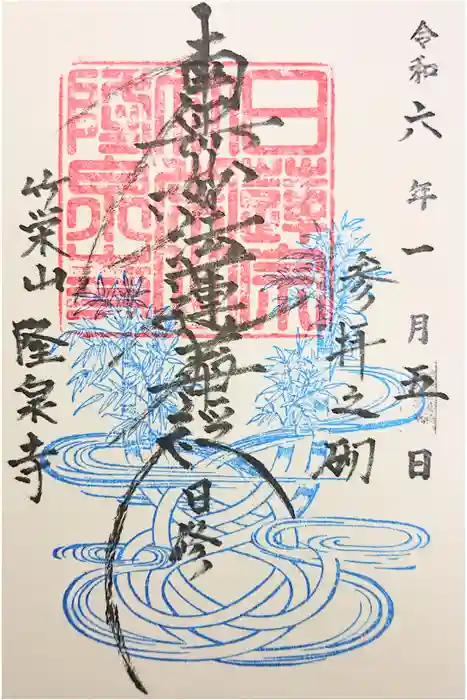 令和六年一月五日
参拝之砌
南無妙法蓮華経
竹栄山 隆泉寺